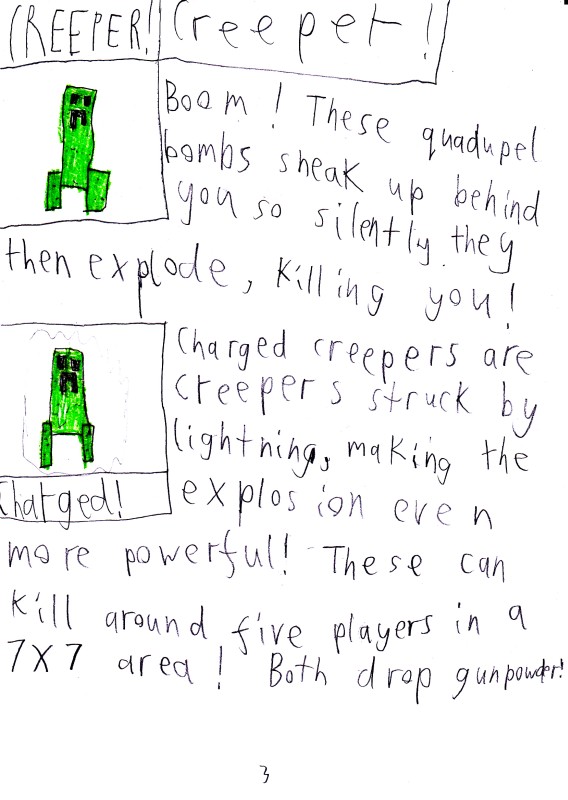 CREEPER! Creeper!
Boom! These quadupel
bombs sneak up behind
you so silently they
then explode, killing you!
Charged creepers are
creepers struck by
lightning, making the
Charged!
explosion even
more powerful! These can
kill around five players in a
7X7 area! Both drop gunpowder!
3